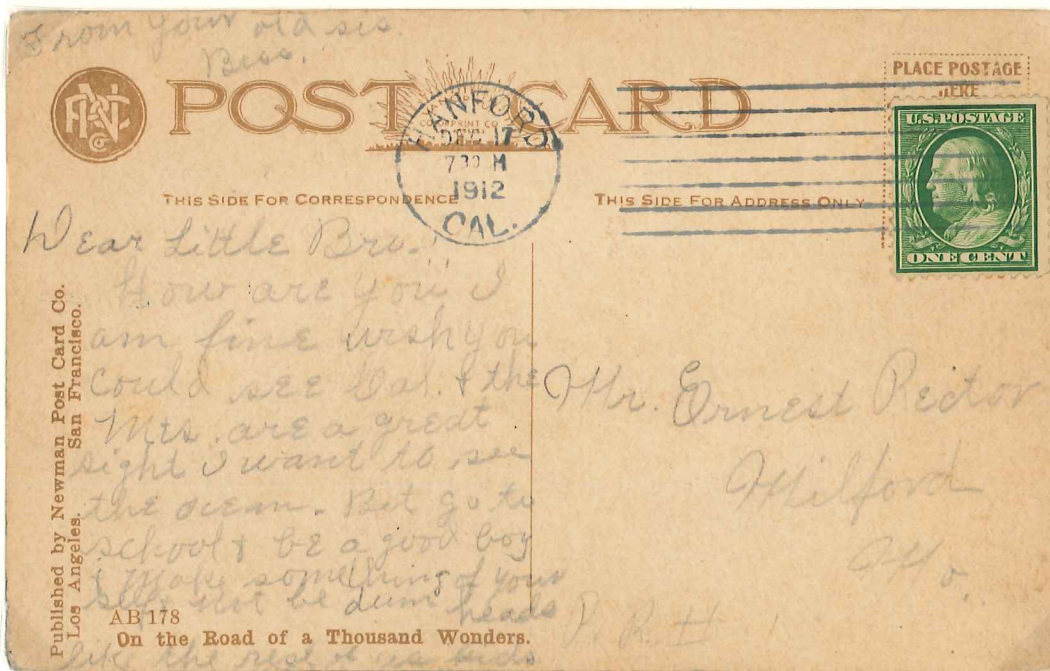 From your old sis.
Bess.
POST CARD
PLACE POSTAGE
HERE
U.S. POSTAGE
ONE CENT
HANFORD
DEC 17
1912
CAL.
THIS SIDE FOR CORRESPONDENCE
THIS SIDE FOR ADDRESS ONLY
Dear Little Bro.
How are you I
am fine wish you
could see Cal. & the
Mts. are a great
sight I want to see
the ocean. But go to
school & be a good boy
& Make something of your
self not be dum heads
like the rest of us kids
Mr. Ernest Rector
Milford
Mo.
Published by Newman Post Card Co.
Los Angeles. San Francisco.
AB 178
On the Road of a Thousand Wonders.